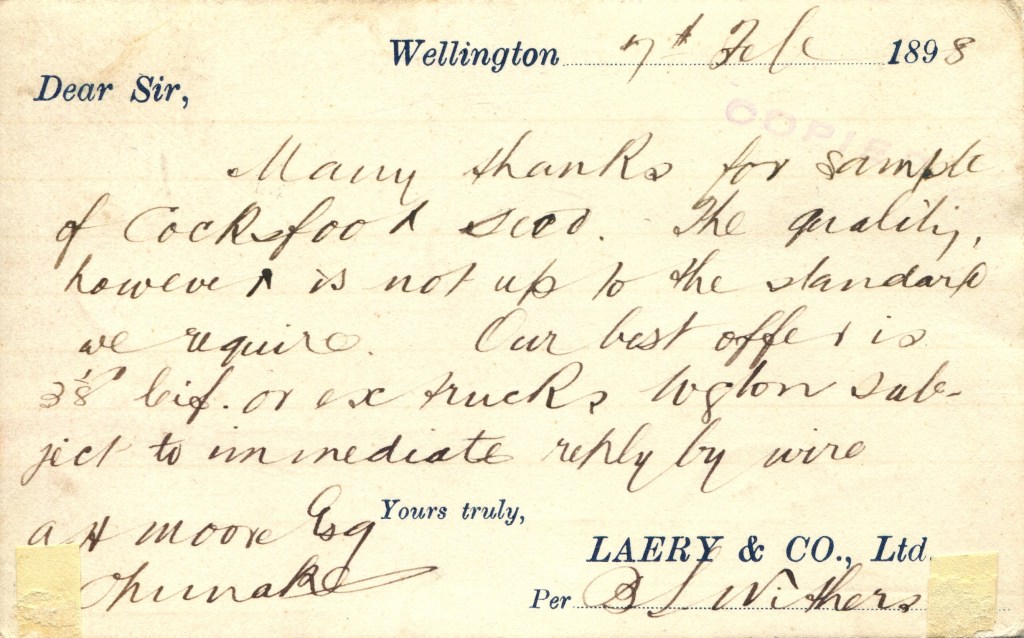 Wellington 7th Feb 1898
Dear Sir,
COPIED
Many thanks for sample
of Cocksfoot seed. The quality,
however is not up to the standard
we require. Our best offer is
3 1/8d c.i.f. or ex trucks Wgton sub-
ject to immediate reply by wire
Yours truly,
A H Moore Esq
Opunake
LAERY & CO., Ltd.
Per B L Withers